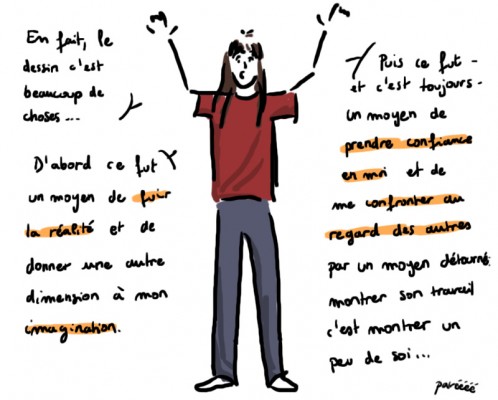 En fait, le
dessin c'est
beaucoup de
choses...
D'abord ce fut
un moyen de fuir
la réalité et de
donner une autre
dimension à mon
imagination.
Puis ce fut -
et c'est toujours -
un moyen de
prendre confiance
en moi et de
me confronter au
regard des autres
par un moyen détourné:
montrer son travail
c'est montrer un
peu de soi...